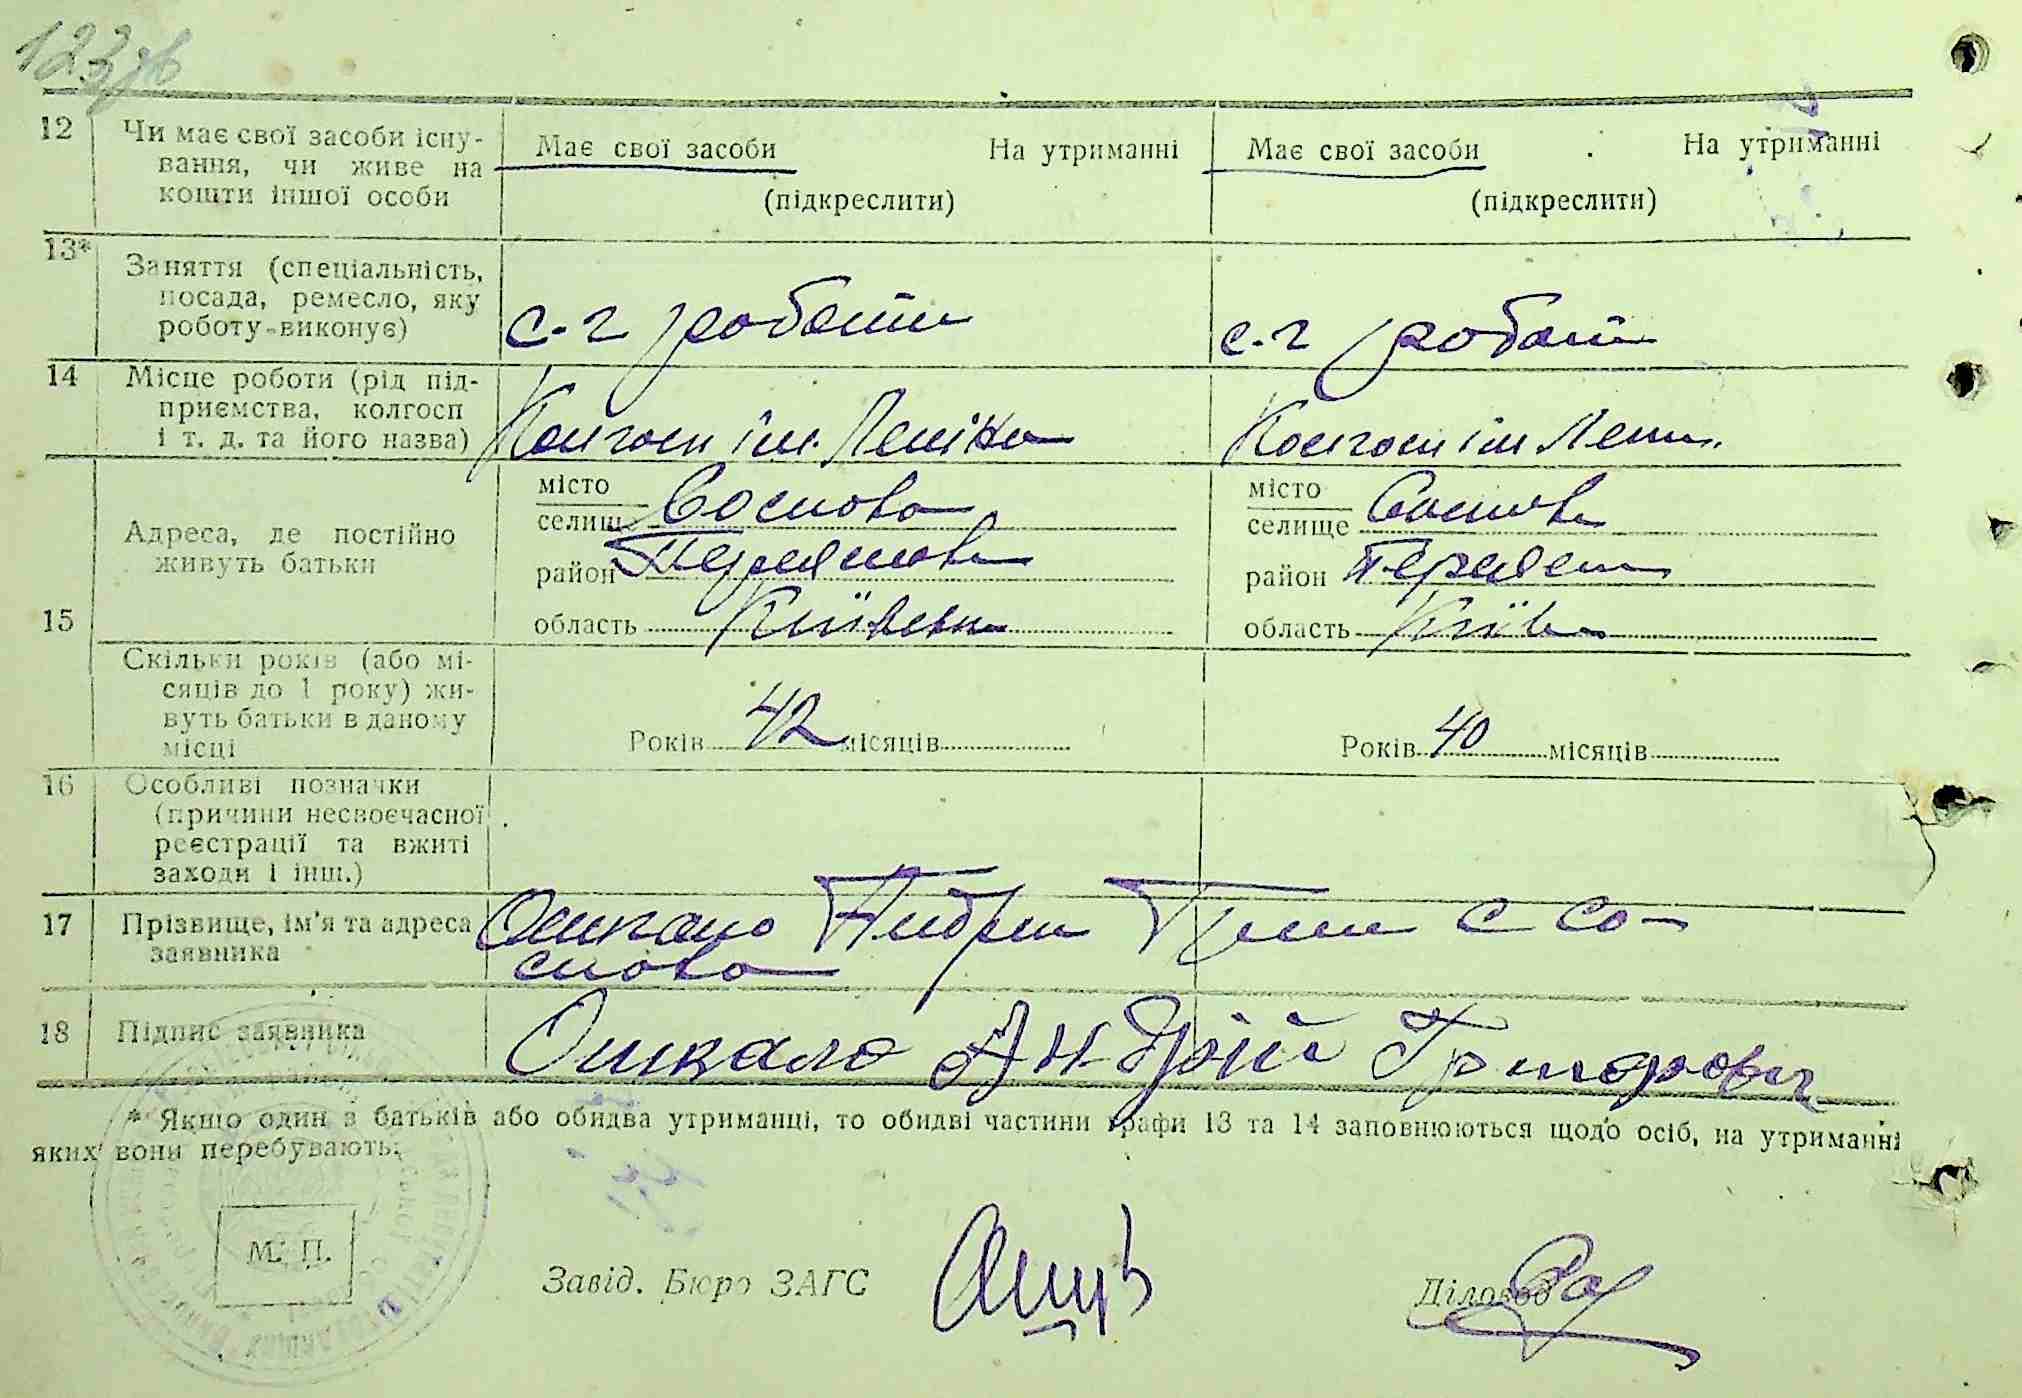 123зв
12 Чи має свої засоби існу-
вання, чи живе на
кошти іншої особи
Має свої засоби На утриманні
(підкреслити)
Має свої засоби На утриманні
(підкреслити)
13* Заняття (спеціальність,
посада, ремесло, яку
роботу виконує)
с-г роботи
с.г робот
14 Місце роботи (рід під-
приємства, колгосп
і т. д. та його назва)
Колгосп ім. Леніна
Колгосп ім Лені
15 Адреса, де постійно
живуть батьки
місто
селище Соснова
район
область Київськ
місто
селище Соснова
район Переясл
область Київ
Скільки років (або мі-
сяців до 1 року) жи-
вуть батьки в даному
місці
Років 42 місяців
Років 40 місяців
16 Особливі позначки
(причини несвоєчасної
реєстрації та вжиті
заходи і інш.)
17 Прізвище, ім'я та адреса
заявника
Ошкало Андрій с Со-
снова
18 Підпис заявника
Ошкало Андрій Григорович
* Якщо один з батьків або обидва утриманці, то обидві частини графи 13 та 14 заповнюються щодо осіб, на утриманні
яких вони перебувають.
М. П.
Завід. Бюро ЗАГС
Діловод